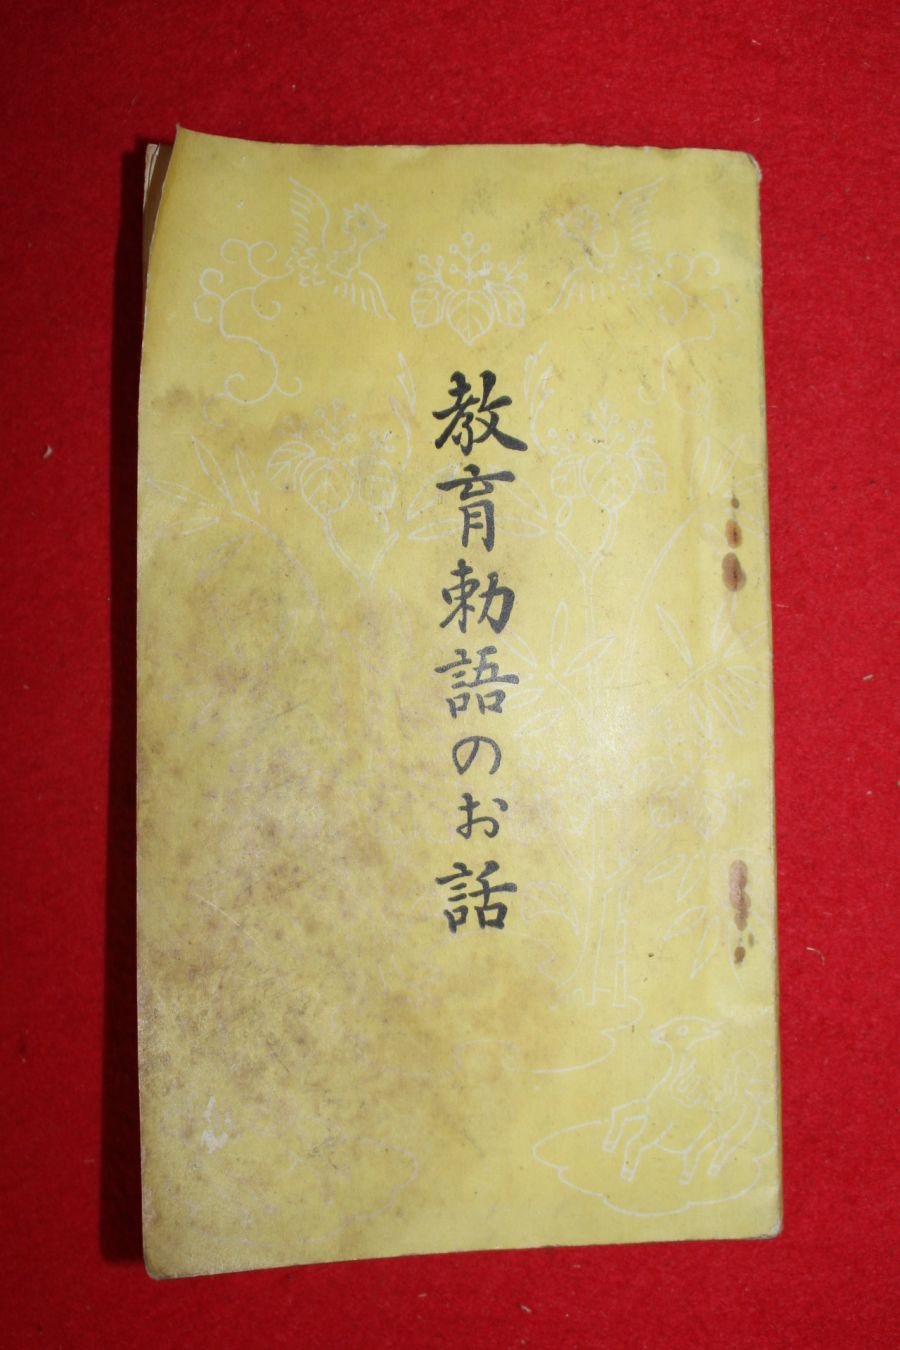 教育勅語のお話